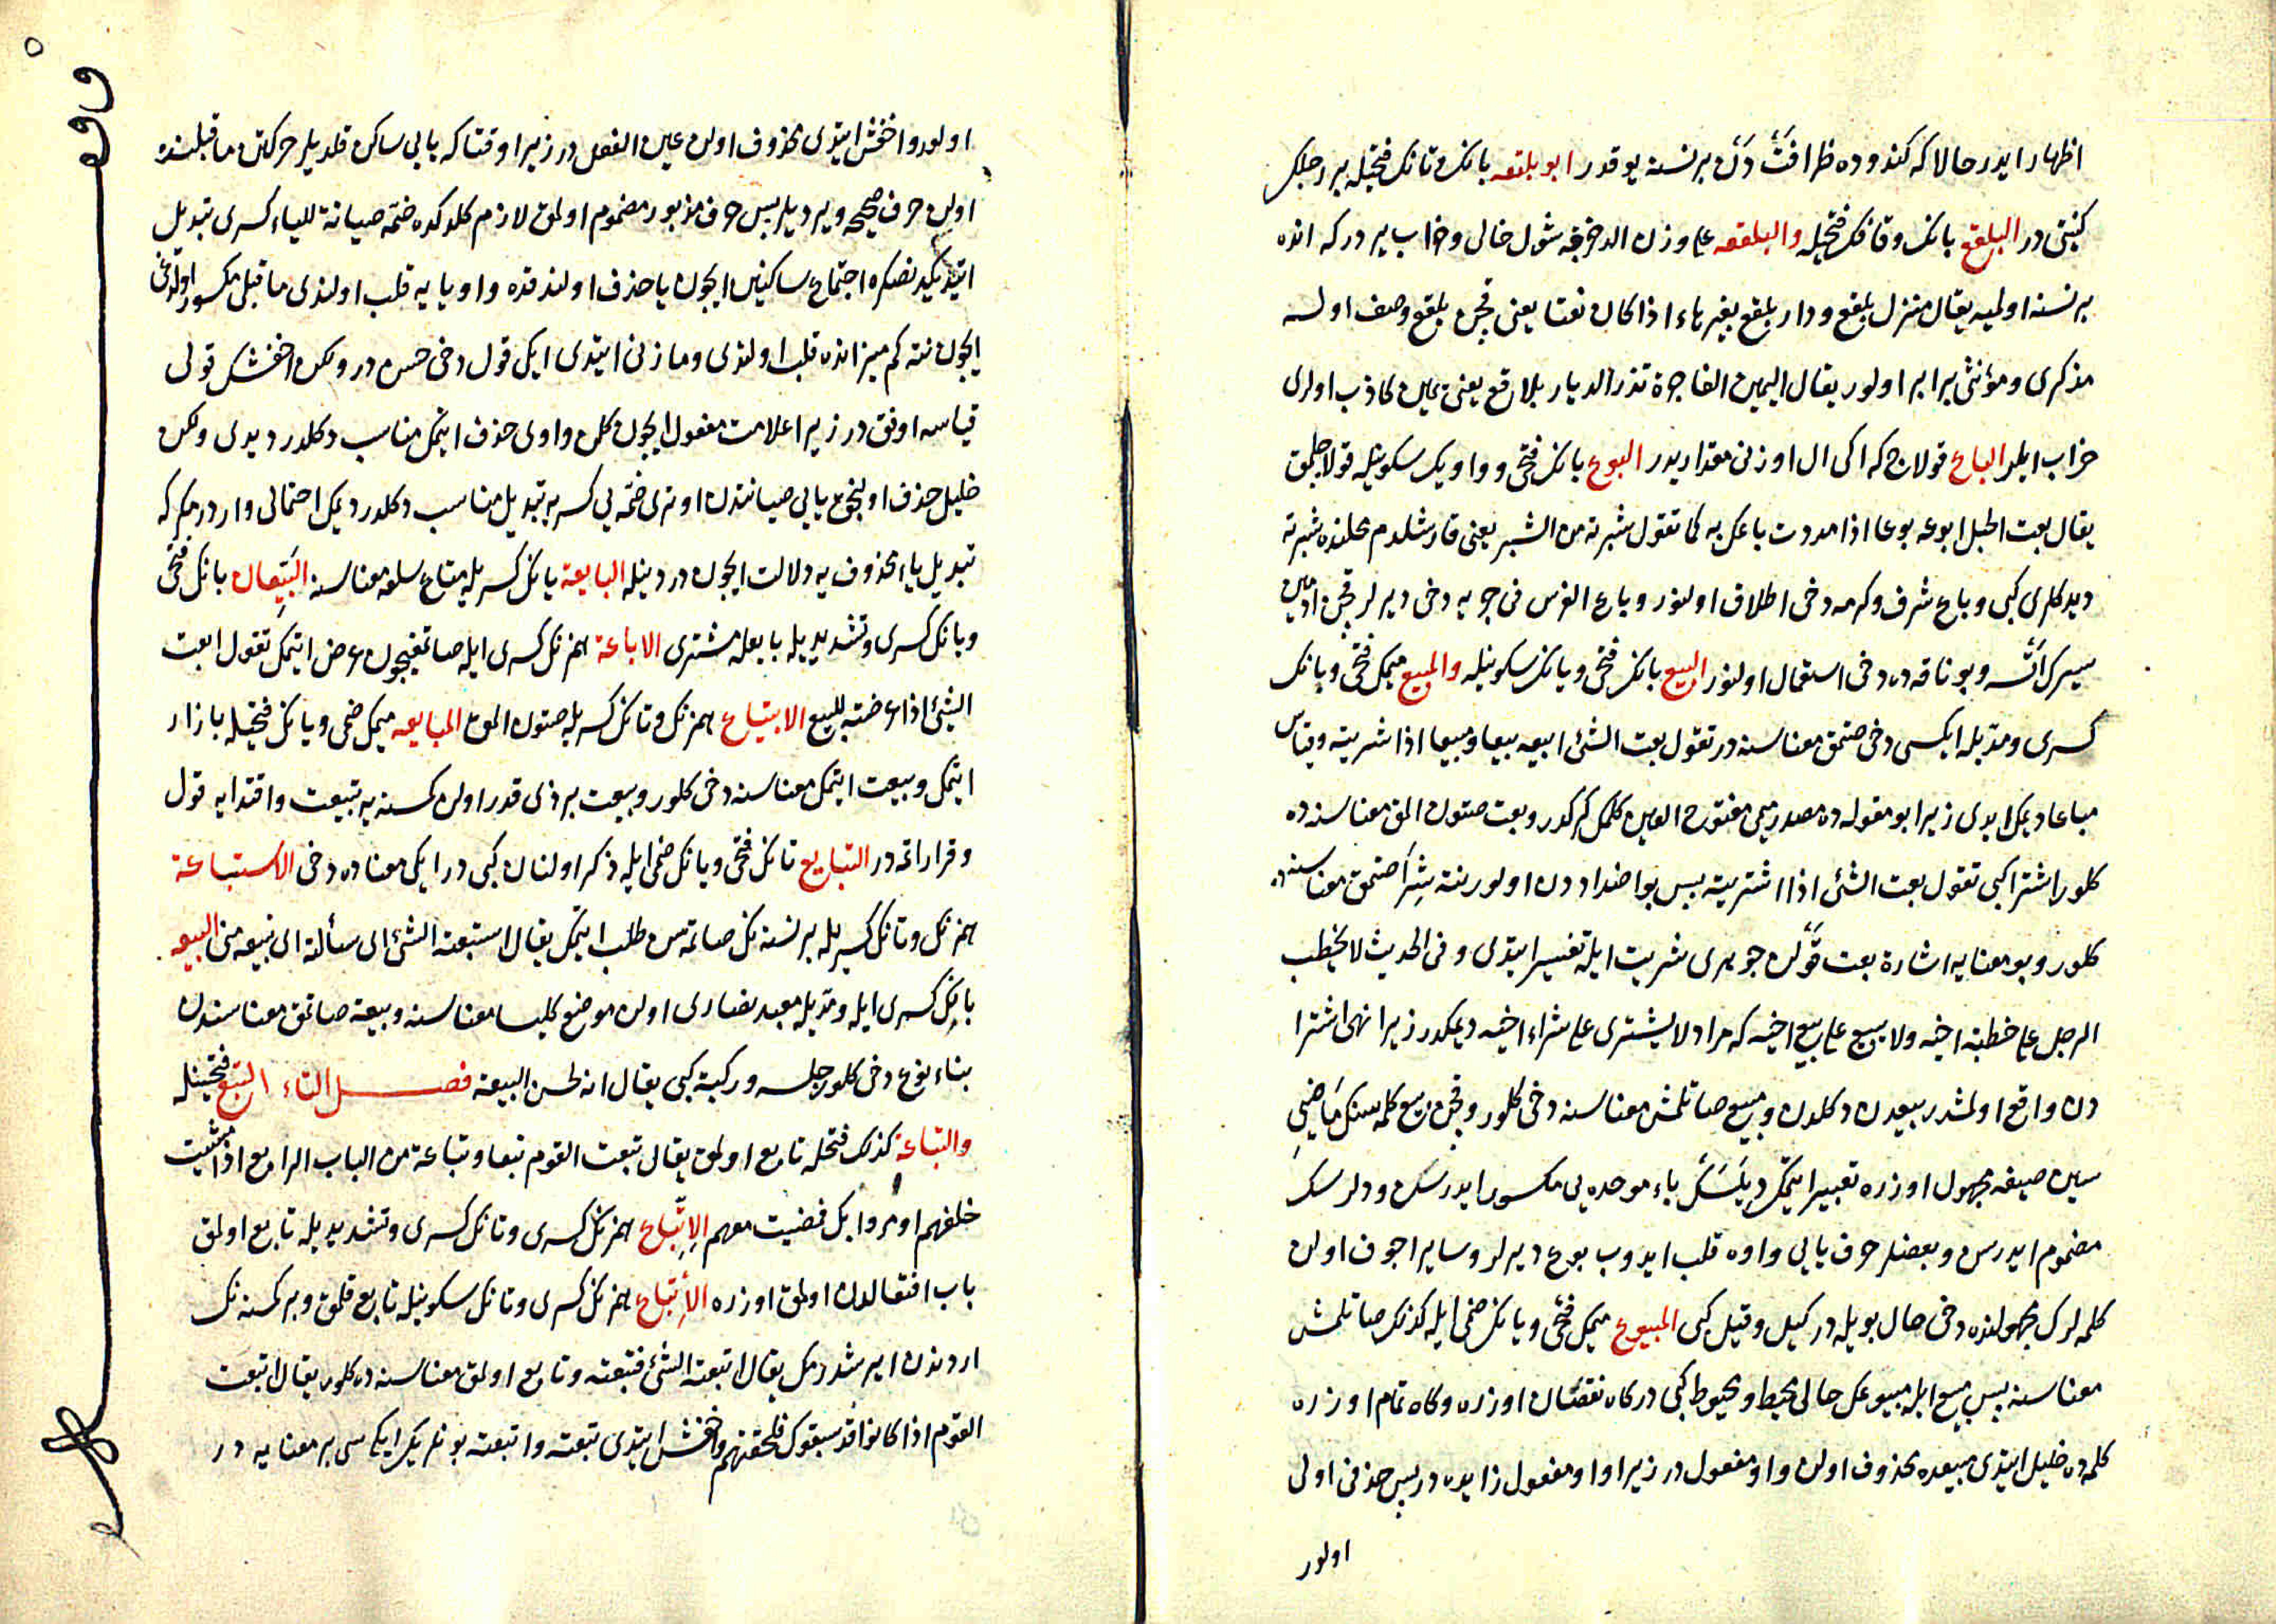 اظهار ايدر حالاكه كندوده ظرافتَّ دَن برنسنه يوقدر ابو بلتعه بانك وتانك فتحيله بر رجلك
كنيتى در البلقع بانك وقافك فتحيله والبلقعه على وزن الدحرجه شول خالى وخراب يردركه انده
برنسنه اولميه يقال منزل بلقع ودار بلقع بغير هاء اذا كان نعتا يعنى قچن بلقع وصف اولسه
مذكرى ومؤنثى برابر اولور يقال اليمين الفاجرة تذر الديار بلاقع يعنى يمين كاذب اولرى
خراب ايلر الباع قولاج كه اكى ال اوزنى مقداريدر البوع بانك فتحى وواويك سكونيله قولاجلمق
يقال بعت الحبل ابوعه بوعا اذا مددت باعك به كما تقول شبرته من الشبر يعنى قارشلدم محلنده شبرته
ديدكلرى كبى وباع شرف وكرمه دخى اطلاق اولنور وباع الفرس فى جريه دخى ديرلر قچن اديمن
سيرك اتسه وبو ناقه ده دخى استعمال اولنور البيع بانك فتحى ويانك سكونيله والمبيع ميمك فتحى وبانك
كسرى ومديله ايكسى دخى صتمق معناسنه در تقول بعت الشئ ابيعه بيعا ومبيعا اذا شريته وقياس
مباعا ديمك ايدى زيرا بو مقوله ده مصدر ميمى مفتوح العين كلمك كركدر وبعت صتون المق معناسنه ده
كلور اشترا كبى تقول بعت الشئ اذا اشتريته پس بو اضداددن اولور نته شِرَا صتمق معناسنه ده
كلور وبو معنايه اشارة بعت قَوْلن جوهرى شريت ايله تفسير ايتدى وفى الحديث لا يخطب
الرجل على خطبة اخيه ولا يبيع على بيع اخيه كه مراد لا يشترى على شراء اخيه ديمكدر زيرا نهى اشترا
دن واقع اولمشدر بيعدن دكلدن ومبيع صاتلمش معناسنه دخى كلور وقچن بيع كلمه سنك مَاضىِ
سين صيغه مجهول اوزره تعبير ايتمك ديلَسَك باء موحده يى مكسور ايدرسن ودلرسك
مضموم ايدرسن وبعضلر حرف يايى واوه قلب ايدوب بوع ديرلر وساير اجوف اولن
كلمه لرك مجهولنده دخى حال بويله در كيل وقيل كبى المبيوع ميمك فتحى ويانك ضمى ايله كذلك صاتلمش
معناسنه پس مبيع ايله مبيوعك حالى مخيط ومخيوط كبى در كاه نقصان اوزره وكاه تمام اوزره
كلمه ده خليل ايتدى مبيعده محذوف اولن واو مفعول در زيرا واو مفعول زايده در پس حذفى اولى
اولور
اولور واخفش ايتدى محذوف اولن عين الفعل در زيرا وقتاكه يايى ساكن قلديلر حركتن ماقبلنده
اولن حرف صحيحه ويرديلر پس حرف مزبور مضموم اولمق لازم كلدكده ضمه صيانة للياء كسرى تبديل
ايتديكيدنصكره اجتماع ساكنين ايچون يا حذف اولندقده واو يايه قلب اولندى ماقبلى مكسور اولدوغى
ايچون نته كم ميزانده قلب اولندى ومازنى ايتدى ايكى قول دخى حسن در ولكن اخفشك قولى
قياسه اوفق در زيرا علامت مفعول ايچون كلن واوى حذف ايتمك مناسب دكلدر ديدى ولكن
خليل حذف اولنجق يايى صيانتدن اوترى ضمه يى كسريه تبديل مناسب دكلدر ديمك احتمالى واردر مكركه
تبديل ياء محذوف يه دلالت ايچون در دينله البايعة يانك كسريله متاع سلعه معناسنه البَيِّعان بانك فتحى
ويانك كسرى وتشديديله بايعله مشترى الاباعة همزنك كسرى ايله صاتمغيچون عرض ايتمك تقول ابعت
الشئ اذا عرضته للبيع الابتياع همزنك وتانك كسريله صتون المق المبايعه ميمك ضمى ويانك فتحيله بازار
ايتمك وبيعت ايتمك معناسنه دخى كلور وبيعت برذى قدر اولن كمسنه يه تبيعت واقتدايه قول
وقرار اتمه در التبايع تانك فتحى ويانك ضمى ايله ذكر اولنان كبى در ايكى معناده دخى الاستباعة
همزنك وتانك كسريله برنسنه نك صاتمه سن طلب ايتمك يقال استبعته الشئ اى سألته ان يبيعه منى البيعه
بانك كسرى ايله ومديله معبد نصارى اولن موضع كليسا معناسنه وبيعة صاتمق معناسندن
بناء نوع دخى كلور جلسه وركبة كبى يقال انه لحسن البيعة فصل التاء التبع فتحتيله
والتباعة كذلك فتحله تابع اولمق يقال تبعت القوم تبعا وتباعة من الباب الرابع اذا مشيت
خلفهم او مروا بك فمضيت معهم الاِتِّباع همزنك كسرى وتانك كسرى وتشديديله تابع اولمق
باب افتعالدن اولمق اوزره الأِتباع همزنك كسرى وتانك سكونيله تابع قلمق وبر كمسنه نك
اردندن ايرشدرمك يقال اتبعته الشئ فتبعته وتابع اولمق معناسنه ده كلور يقال اتبعت
القوم اذا كانوا قد سبقوك فلحقتهم واخفش ايتدى تبعته واتبعته بونلريك ايكى سى بر معنايه در